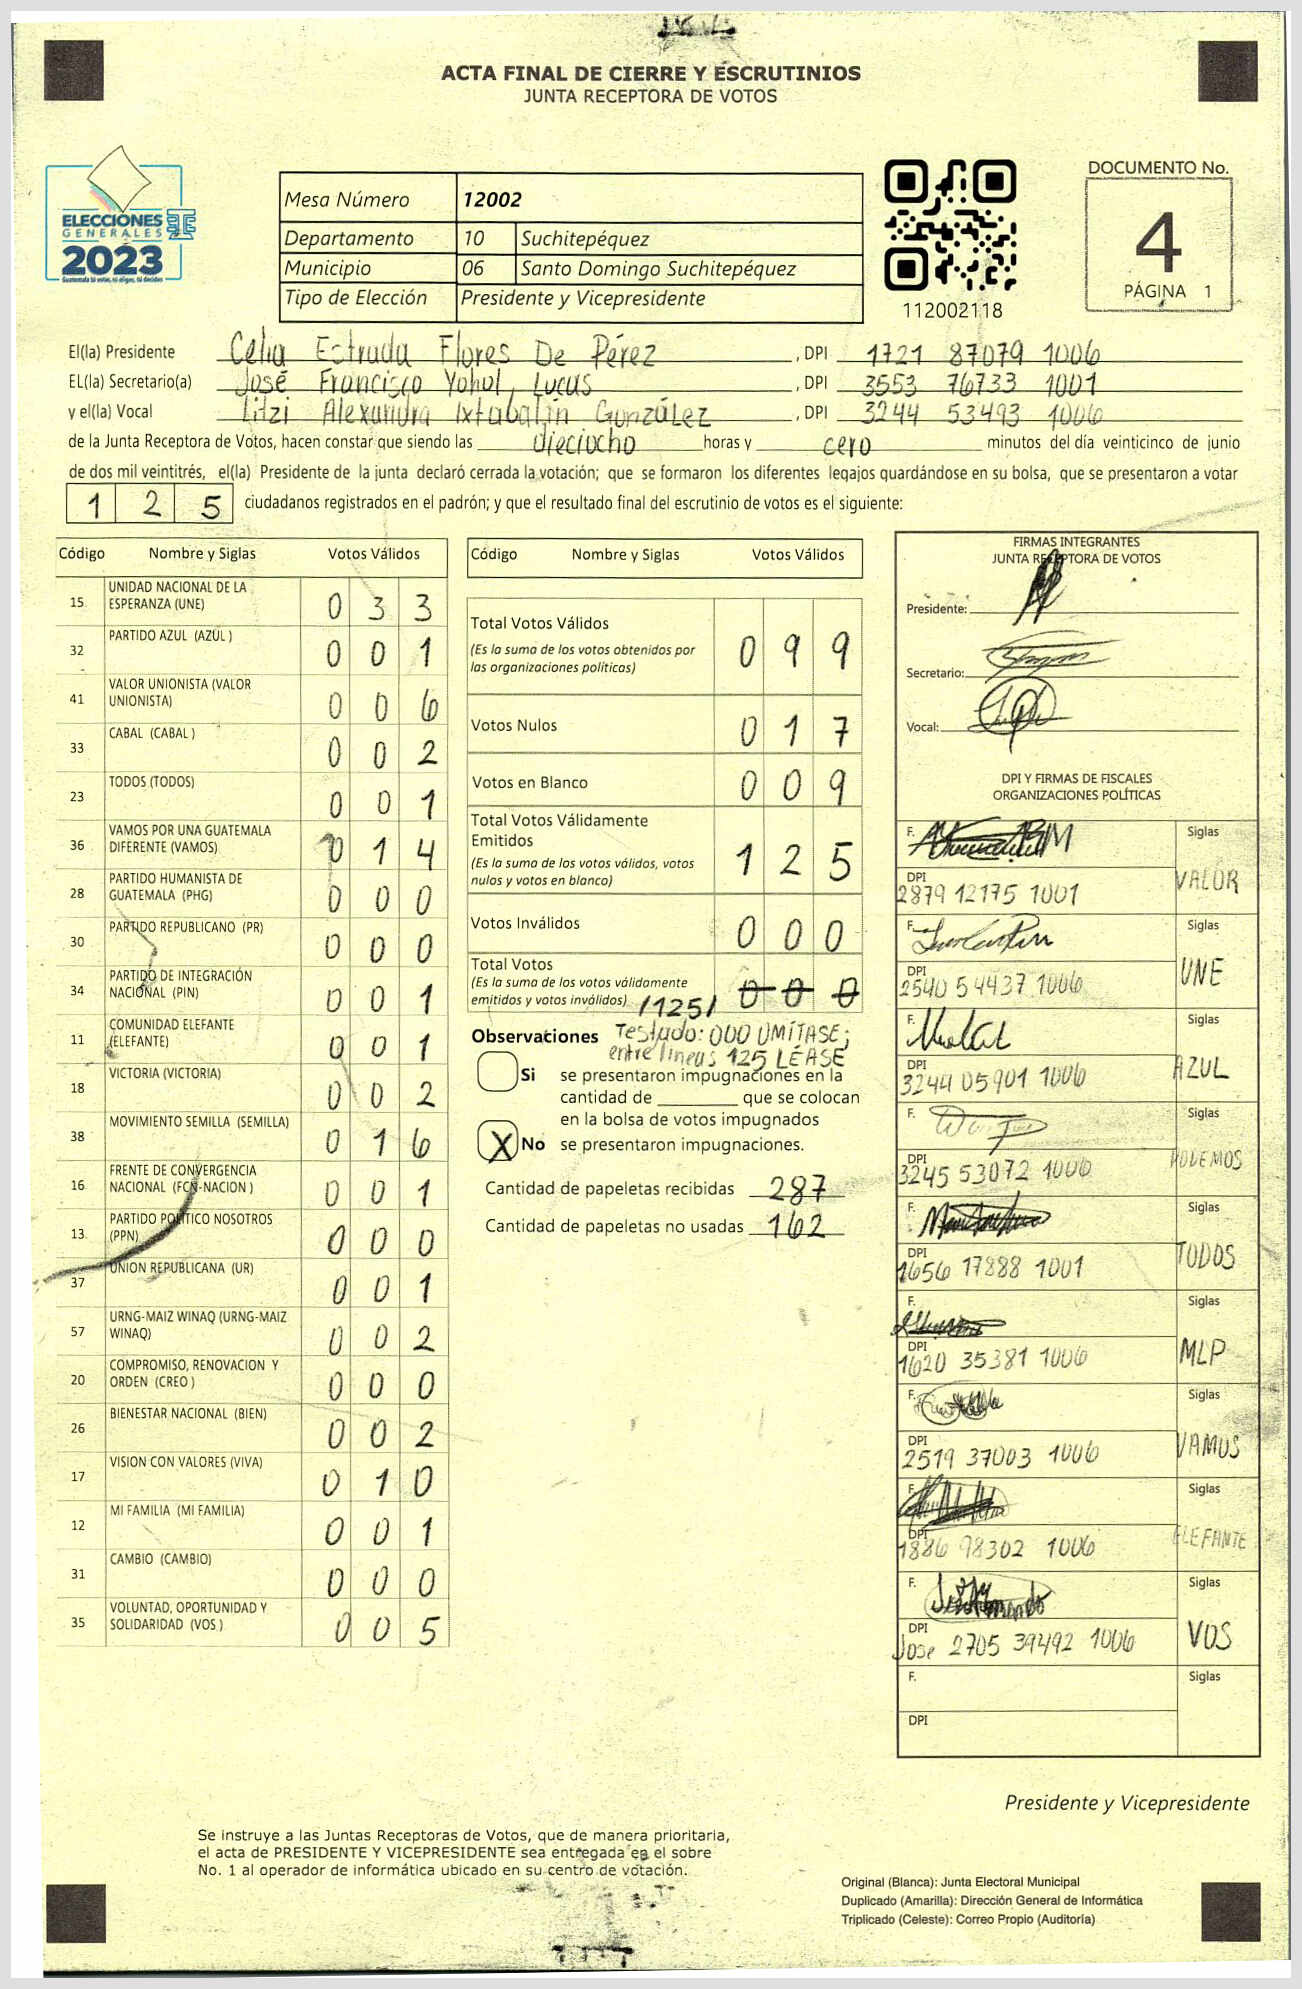 ACTA FINAL DE CIERRE Y ESCRUTINIOS
JUNTA RECEPTORA DE VOTOS
ELECCIONES
GENERALES
2023
Guatemala tú votas, tú eliges, tú decides
Mesa Número 12002
Departamento 10 Suchitepéquez
Municipio 06 Santo Domingo Suchitepéquez
Tipo de Elección Presidente y Vicepresidente
112002118
DOCUMENTO No.
4
PÁGINA 1
El(la) Presidente Celia Estrada Flores De Pérez, DPI 1721 87079 1006
EL(la) Secretario(a) José Francisco Yohol Lucas, DPI 3553 76733 1001
y el(la) Vocal Litzi Alexandra Ixtabalín González, DPI 3244 53493 1006
de la Junta Receptora de Votos, hacen constar que siendo las dieciocho horas y cero minutos del día veinticinco de junio
de dos mil veintitrés, el(la) Presidente de la junta declaró cerrada la votación; que se formaron los diferentes legajos quardándose en su bolsa, que se presentaron a votar
1 2 5 ciudadanos registrados en el padrón; y que el resultado final del escrutinio de votos es el siguiente:
Código Nombre y Siglas Votos Válidos
15 UNIDAD NACIONAL DE LA ESPERANZA (UNE) 0 3 3
32 PARTIDO AZUL (AZUL ) 0 0 1
41 VALOR UNIONISTA (VALOR UNIONISTA) 0 0 6
33 CABAL (CABAL ) 0 0 2
23 TODOS (TODOS) 0 0 1
36 VAMOS POR UNA GUATEMALA DIFERENTE (VAMOS) 0 1 4
28 PARTIDO HUMANISTA DE GUATEMALA (PHG) 0 0 0
30 PARTIDO REPUBLICANO (PR) 0 0 0
34 PARTIDO DE INTEGRACIÓN NACIONAL (PIN) 0 0 1
11 COMUNIDAD ELEFANTE (ELEFANTE) 0 0 1
18 VICTORIA (VICTORIA) 0 0 2
38 MOVIMIENTO SEMILLA (SEMILLA) 0 1 6
16 FRENTE DE CONVERGENCIA NACIONAL (FCN-NACION ) 0 0 1
13 PARTIDO POLITICO NOSOTROS (PPN) 0 0 0
37 UNION REPUBLICANA (UR) 0 0 1
57 URNG-MAIZ WINAQ (URNG-MAIZ WINAQ) 0 0 2
20 COMPROMISO, RENOVACION Y ORDEN (CREO ) 0 0 0
26 BIENESTAR NACIONAL (BIEN) 0 0 2
17 VISION CON VALORES (VIVA) 0 1 0
12 MI FAMILIA (MI FAMILIA) 0 0 1
31 CAMBIO (CAMBIO) 0 0 0
35 VOLUNTAD, OPORTUNIDAD Y SOLIDARIDAD (VOS ) 0 0 5
Código Nombre y Siglas Votos Válidos
Total Votos Válidos 0 9 9
(Es la suma de los votos obtenidos por
las organizaciones políticas)
Votos Nulos 0 1 7
Votos en Blanco 0 0 9
Total Votos Válidamente
Emitidos 1 2 5
(Es la suma de los votos válidos, votos
nulos y votos en blanco)
Votos Inválidos 0 0 0
Total Votos
(Es la suma de los votos válidamente
emitidos y votos inválidos) /125/ 0 0 0
Observaciones Testado: 000 OMÍTASE;
entre líneas 125 LÉASE
Si se presentaron impugnaciones en la
cantidad de ________ que se colocan
en la bolsa de votos impugnados
X No se presentaron impugnaciones.
Cantidad de papeletas recibidas 287
Cantidad de papeletas no usadas 162
FIRMAS INTEGRANTES
JUNTA RECEPTORA DE VOTOS
Presidente:
Secretario:
Vocal:
DPI Y FIRMAS DE FISCALES
ORGANIZACIONES POLÍTICAS
F. Siglas
DPI 2879 12175 1001 VALOR
F. Siglas
DPI 2540 54437 1006 UNE
F. Siglas
DPI 3244 05901 1006 AZUL
F. Siglas
DPI 3245 53072 1006 PODEMOS
F. Siglas
DPI 1656 17888 1001 TODOS
F. Siglas
DPI 1620 35381 1006 MLP
F. Siglas
DPI 2519 37003 1006 VAMOS
F. Siglas
DPI 1886 98302 1006 ELEFANTE
F. Siglas
DPI Jose 2705 39492 1006 VOS
F. Siglas
DPI
Presidente y Vicepresidente
Se instruye a las Juntas Receptoras de Votos, que de manera prioritaria,
el acta de PRESIDENTE Y VICEPRESIDENTE sea entregada en el sobre
No. 1 al operador de informática ubicado en su centro de votación.
Original (Blanca): Junta Electoral Municipal
Duplicado (Amarilla): Dirección General de Informática
Triplicado (Celeste): Correo Propio (Auditoría)